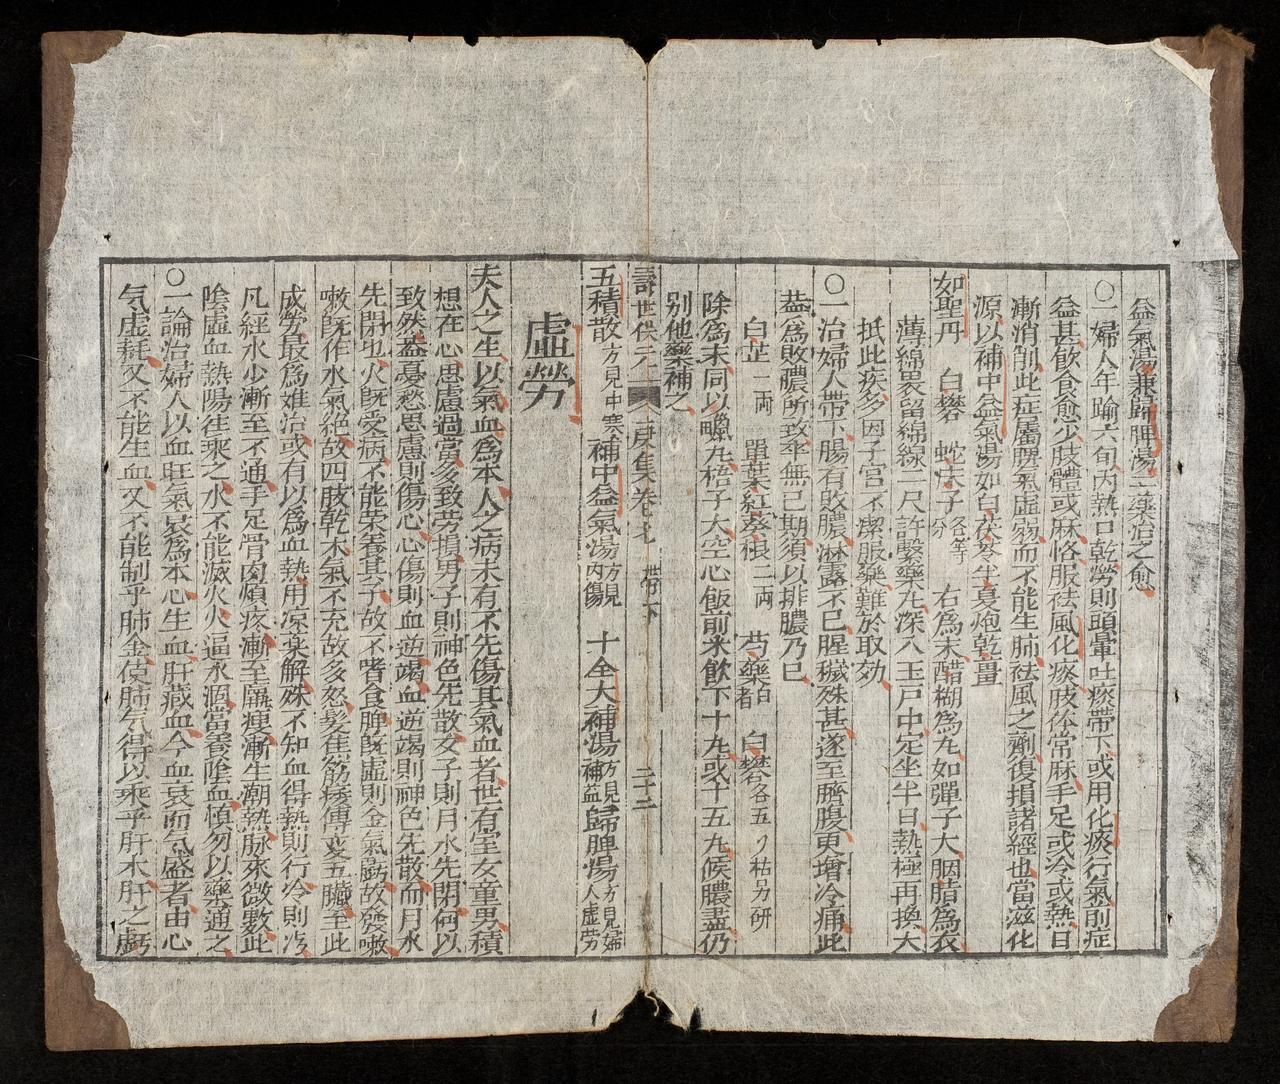 益氣湯兼歸脾湯二藥治之愈
○一婦人年踰六旬內熱口乾勞則頭暈吐痰帶下或用化痰行氣前症
益甚飲食愈少肢體或麻恪服祛風化痰肢体常麻手足或冷或熱日
漸消削此症屬脾氣虛弱而不能生肺祛風之劑復損諸經也當滋化
源以補中益氣湯加白茯苓半夏炮乾畺
如聖丹 白礬 蛇床子 各等分 右爲末醋糊爲丸如彈子大胭脂爲衣
薄綿裹留綿線一尺許毉藥丸深入玉戶中定坐半日熱極再換大
抵此疾多因子宮不潔服藥難於取効
○一治婦人帶下腸有敗膿淋露不已腥穢殊甚遂至臍腹更增冷痛此
蓋爲敗膿所致卒無已期須以排膿乃已
白芷一両 單葉紅葵根二両 芍藥白者 白礬各五𠂆枯另研
除爲末同以蠟丸梧子大空心飯前米飲下十丸或十五丸候膿盡仍
別他藥補之
壽世保元 庚集卷七 帶下 二十二
五積散方見中寒 補中益氣湯方見內傷 十全大補湯方見補益 歸脾湯方見婦人虛勞
虛勞
夫人之生以氣血爲本人之病未有不先傷其氣血者世有室女童男積
想在心思慮過當多致勞損男子則神色先散女子則月水先閉何以
致然蓋憂愁思慮則傷心心傷則血逆竭血逆竭則神色先散而月水
先閉也火旣受病不能榮養其子故不嗜食脾旣虛則金氣虧故發嗽
嗽旣作水氣絕故四肢乾木氣不充故多怒髮焦筋痿傳変五臟至此
成勞最爲難治或有以爲血熱用凉藥解殊不知血得熱則行冷則凝
凡經水少漸至不通手足骨肉煩疼漸至羸瘦漸生潮熱脉來微數此
陰虛血熱陽往乘之水不能滅火火逼水涸當養陰血愼勿以藥通之
○一論治婦人以血旺氣衰爲本心生血肝藏血今血衰而气盛者由心
气虛耗又不能生血又不能制乎肺金使肺气得以乘乎肝木肝之虧